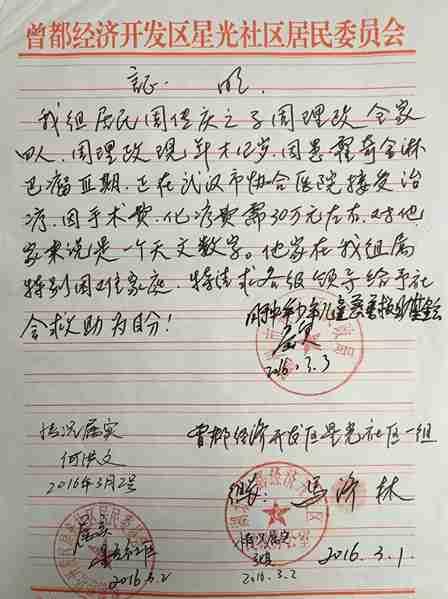 曾都经济开发区星光社区居民委员会
证明
我组居民周传庆之子周理政全家
四人、周理政现年才12岁、因患霍奇金淋
巴瘤Ⅲ期、正在武汉市协合医院接受治
疗、因手术费、化疗费需30万元左右、对他
家来说是一个天文数字。他家在我组属
特别困难家庭、特请求各级领导给予社
会救助为盼！
属实
2016.3.3
情况属实
何洪文
2016年3月2号
曾都经济开发区星光社区一组
组长：马济林
2016.3.1
属实
2016.3.2
情况属实
2016.3.2